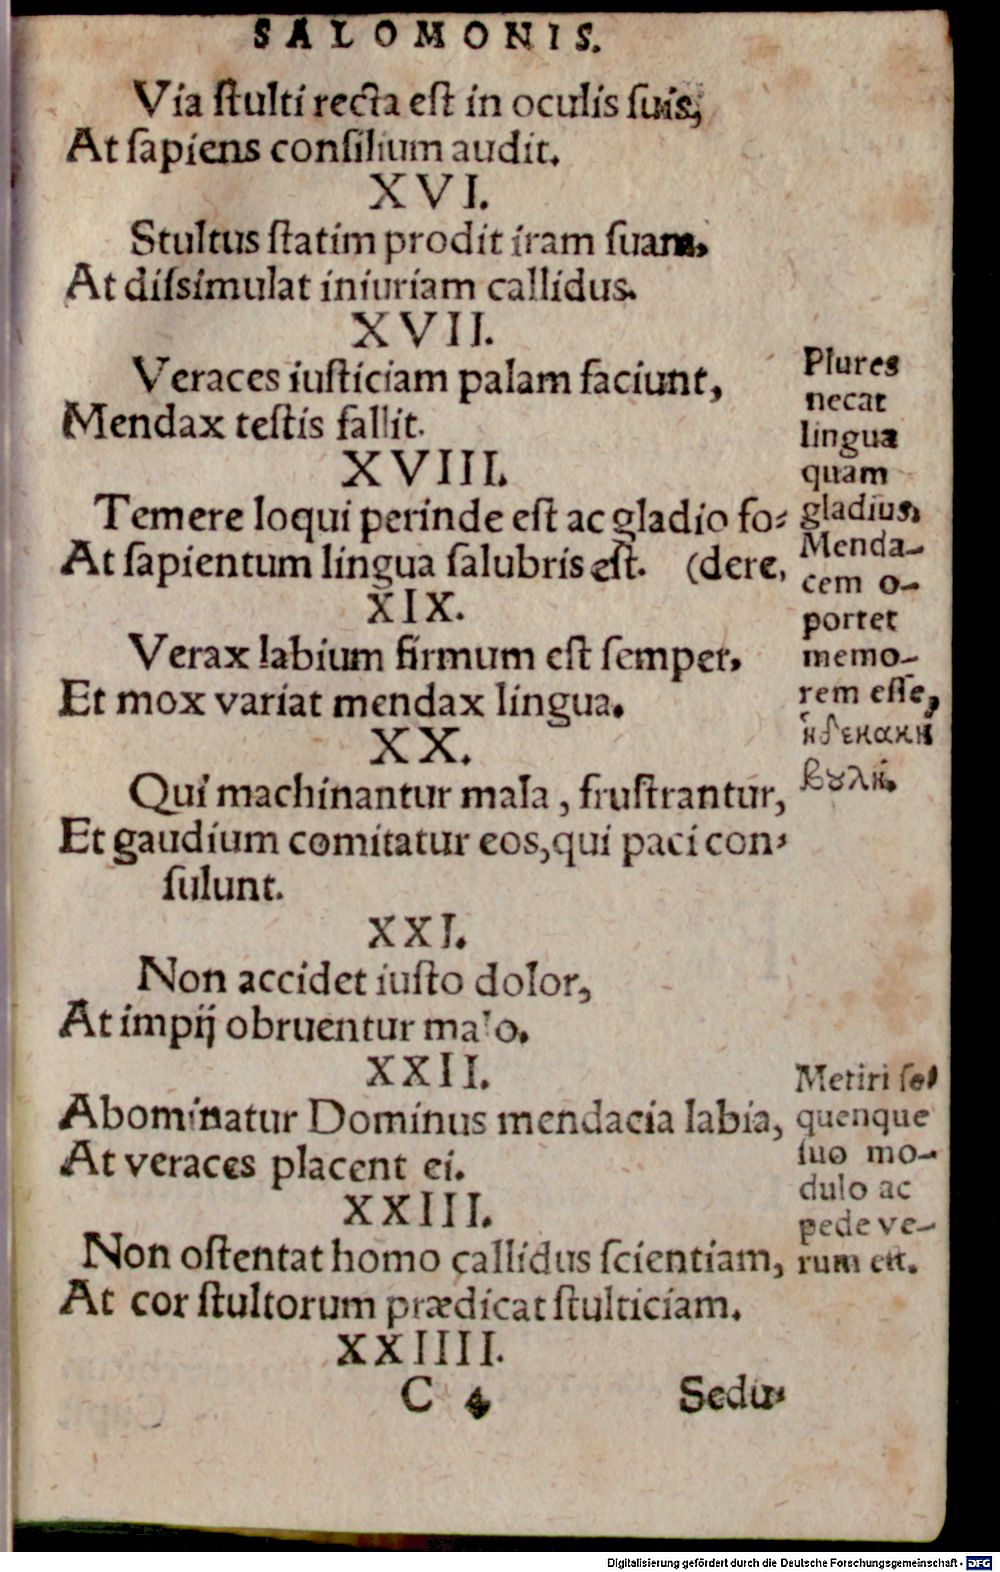 SALOMONIS.
Via ſtulti recta eſt in oculis ſuis,
At ſapiens conſilium audit.
XVI.
Stultus ſtatim prodit iram ſuam,
At diſsimulat iniuriam callidus.
XVII.
Veraces iuſticiam palam faciunt,
Mendax teſtis fallit.
XVIII.
Temere loqui perinde eſt ac gladio fo-
At ſapientum lingua ſalubris eſt. (dere,
XIX.
Verax labium firmum eſt ſemper,
Et mox variat mendax lingua.
XX.
Qui machinantur mala, fruſtrantur,
Et gaudium comitatur eos, qui paci con-
ſulunt.
XXI.
Non accidet iuſto dolor,
At impij obruentur malo.
XXII.
Abominatur Dominus mendacia labia,
At veraces placent ei.
XXIII.
Non oſtentat homo callidus ſcientiam,
At cor ſtultorum prædicat ſtulticiam.
XXIIII.
C 4 Sedu-
Plures
necat
lingua
quam
gladius,
Menda-
cem o-
portet
memo-
rem eſſe,
ἡ δὲ κακὴ
βουλή.
Metiri ſe
quenque
ſuo mo-
dulo ac
pede ve-
rum eſt.
Digitalisierung gefördert durch die Deutsche Forschungsgemeinschaft - DFG